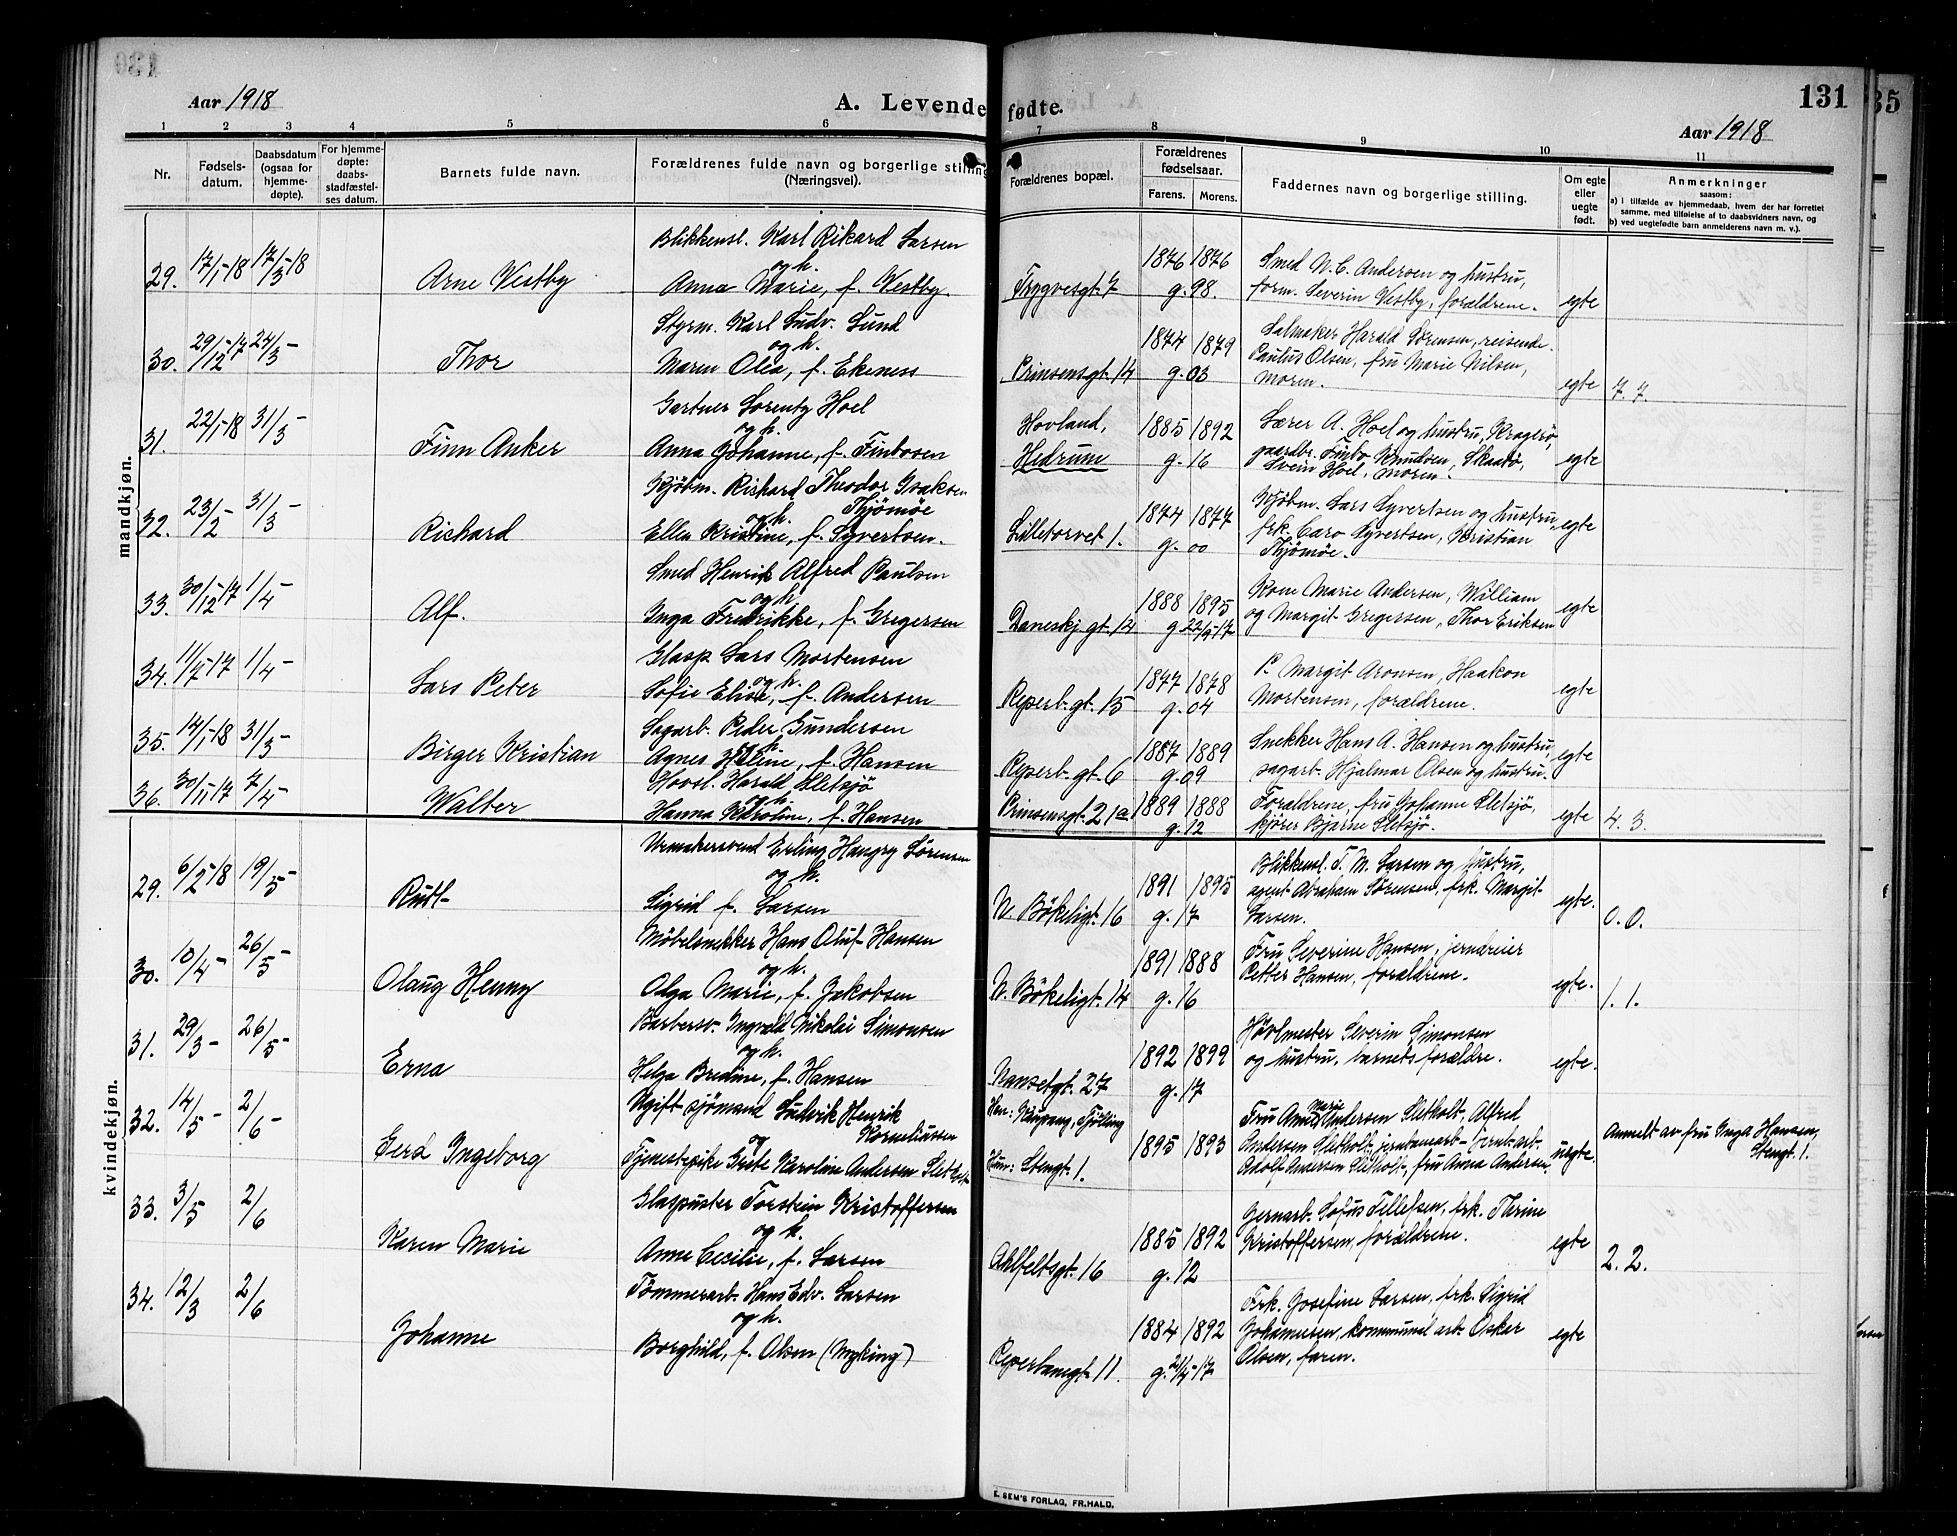 Aar 1918
A. Levende fødte.
131
Aar 1918
1 2 3 4 5 6 7 8 9 10 11
Nr.
Fødsels-
datum.
Daabsdatum
(ogsaa for
hjemme-
døpte).
For hjemme-
døpte:
daabs-
stadfæstel-
ses datum.
Barnets fulde navn.
Forældrenes fulde navn og borgerlige stilling
(Næringsvei).
Forældrenes bopæl.
Forældrenes
fødselsaar.
Farens. Morens.
Faddernes navn og borgerlige stilling.
Om egte
eller
uegte
født.
Anmerkninger
saasom:
a) i tilfælde av hjemmedaab, hvem der har forrettet
samme, med tilføielse af to daabsvidners navn, og
b) ved uegtefødte barn anmelderens navn m. v.).
mandkjøn.
29. 17/1-18 17/3-18 Arne Vestby
Blikkensl. Karl Rikard Larsen
og h.
Anna Marie, f. Westby.
Trygvesgt. 7
1876 1876
g. 98.
Smed N. C. Andersen og hustru,
form. Severin Vestby, forældrene.
egte
30. 29/12-17 24/3- Thor
Styrm. Karl Ludv. Lund
og h.
Maren Olea, f. Ekeness
Prinsensgt. 14
1874 1879
g. 03
Salmaker Harald Sørensen, reisende
Paulus Olsen, fru Marie Nilsen,
moren.
egte 7. 7.
31. 22/1-18 31/3- Finn Anker
Gartner Lorentz Hoel
og h.
Anna Johanne, f. Finbosen
Hovland,
Hedrum
1885 1892
g. 16
Lærer A. Hoel og hustru, Kragerø,
gaardbr. Finbo Knudsen, Skaatø,
Svein Hoel, moren.
egte
32. 23/2- 31/3- Richard
Kjøbm. Richard Theodor Isaksen
og h. Thjömöe
Ellen Kristine, f. Syvertsen.
Lilletorvet 1.
1874 1877
g. 00
Kjøbm. Lars Syvertsen og hustru,
frk. Caro Syvertsen, Kristian
Thjömöe.
egte
33. 30/12-17 1/4- Alf.
Smed Henrik Alfred Paulsen
og h.
Inga Fredrikke, f. Gregersen
Daneskj. gt. 12
1888 1895
g. 22/9-17
Kone Marie Andersen, William
og Margit Gregersen, Thor Eriksen
egte
34. 11/7-17 1/4- Lars Peter
Glasp Lars Mortensen
og h.
Sofie Elise, f. Andersen
Reperb. gt. 15
1877 1878
g. 04
P. Margit Aronsen, Haakon
Mortensen, forældrene.
egte
35. 14/1-18 31/3- Birger Kristian
Sagarb. Peder Gundersen
og h.
Agnes Heline, f. Hansen
Reperb. gt. 6
1887 1889
g. 09
Snekker Hans A. Hansen og hustru,
sagarb. Hjalmar Olsen og hustru.
egte
36. 30/11-17 7/4- Walter
Hovsl. Harald Sletsjö
og h.
Hanna Karoline, f. Hansen
Prinsensgt. 21a
1889 1888
g. 12
Forældrene, fru Johanne Sletsjö,
kjører Bjarne Sletsjö.
egte 4. 3.
kvindekjøn.
29. 6/2-18 19/5- Rutt
Urmakersvend Erling Hangry Sörensen
og h.
Sigrid f. Larsen
N. Bökeligt. 16
1891 1895
g. 17
Blikkensl. T. M. Larsen og hustru,
agent Abraham Sørensen, frk. Margit
Larsen.
egte. 0. 0.
30. 10/4- 26/5- Olaug Henny
Möbelsnekker Hans Oluf Hansen
og h.
Olga Marie, f. Jakobsen
N. Bökeligt. 14
1891 1888
g. 16
Fru Severine Hansen, jerndreier
Petter Hansen, forældrene.
egte. 1. 1.
31. 29/3- 26/5- Erna
Barbersv. Ingvald Nikolai Simonsen
og h.
Helga Bredine, f. Hansen
Nansetgt. 27
1892 1899
g. 17
Høvlmester Severin Simonsen
og hustru, barnets forældre.
egte.
32. 14/5- 2/6- Gerd Ingeborg
Ugift sjömand Ludvik Henrik
og Korneliussen
Tjenestepike Grete Karoline Andersen Sletholt
Han: Kaupang, Tjölling
Hun: Stengt. 1.
1895 1893
Fru Anne Marie Andersen Sletholt, Alfred
Andersen Sletholt, jernbanearb- jernb. arb.
Adolf Andersen Sletholt, fru Anna Andersen.
uegte.
Anmelt av fru Inga Hansen,
Stengt. 1.
33. 3/5 2/6 Karen Marie
Glaspuster Torstein Kristoffersen
og h.
Anna Cecilie, f. Larsen
Ahlfeltsgt. 16
1885 1892
g. 12
Jernarb. Sofus Tellefsen, frk. Thrine
Kristoffersen, forældrene.
egte 2. 2.
34. 12/3 2/6 Johanne
Tömmerarb. Hans Edv. Larsen
og h.
Borghild, f. Olsen (Myking)
Reperbanegt. 11.
1884 1892
g. 21/4-17
Frk. Josefine Larsen, frk. Sigrid
Johannesen, kommunal arb. Osker
Olsen, faren.
egte
E. SEM'S FORLAG, FR.HALD.